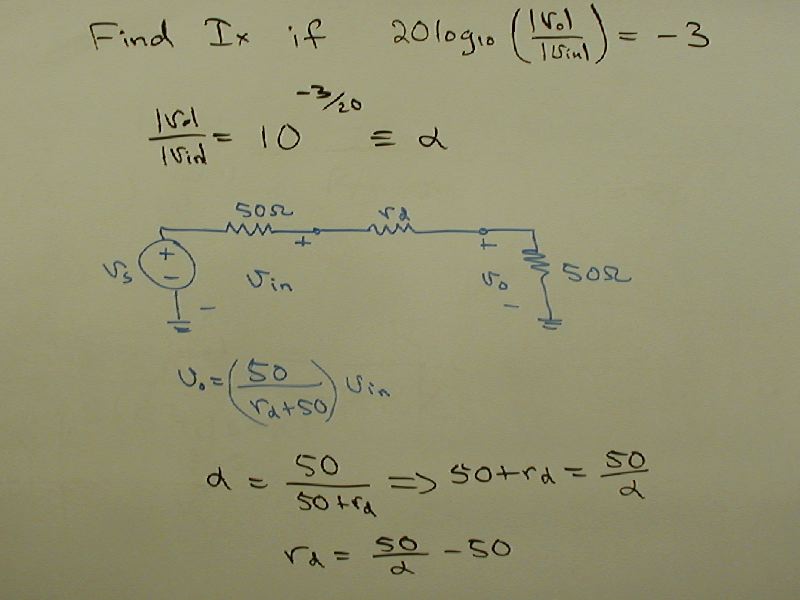 Find Ix if 20log₁₀ (|vo|/|vin|) = -3
|vo|/|vin| = 10^(-3/20) ≡ α
50Ω rd
+ +
vs + - vin vo 50Ω
- -
vo = (50/(rd+50)) vin
α = 50/(50+rd) => 50+rd = 50/α
rd = 50/α - 50